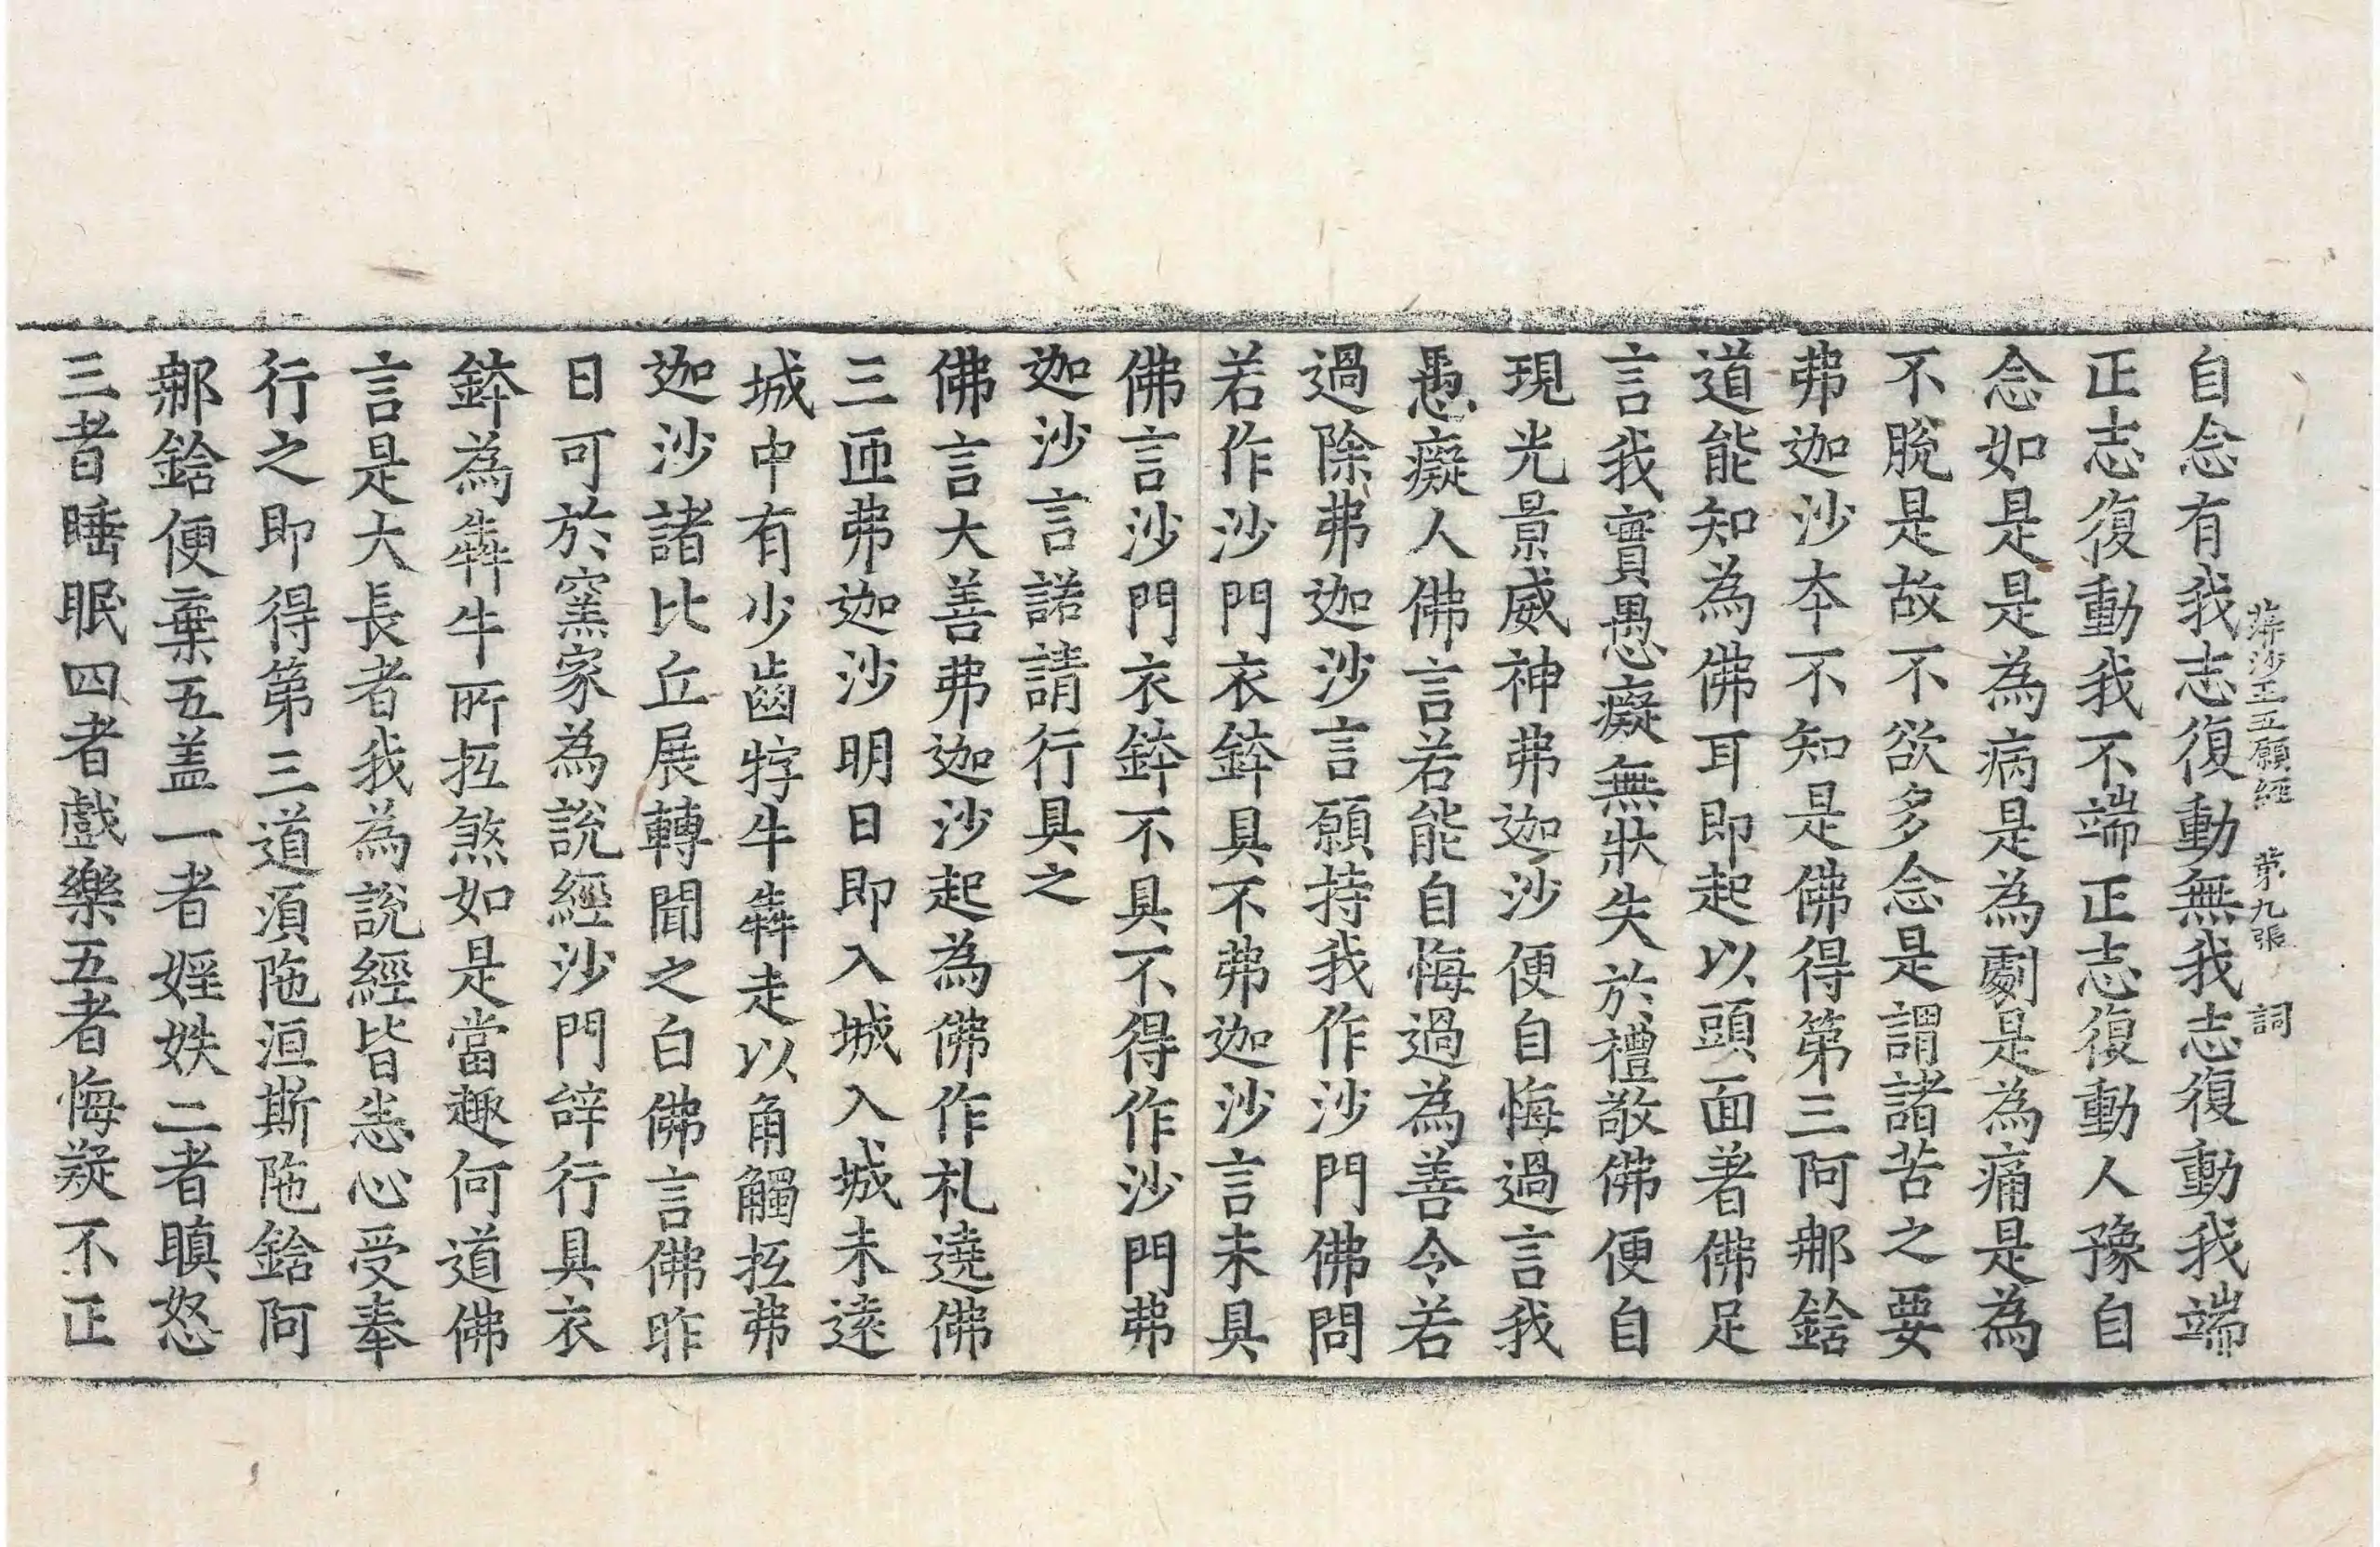 蓱沙王五願經 第九張 詞
自念有我志復動無我志復動我端
正志復動我不端正志復動人豫自
念如是是為病是為劇是為痛是為
不脫是故不欲多念是謂諸苦之要
弗迦沙本不知是佛得第三阿那鋡
道能知為佛耳即起以頭面著佛足
言我實愚癡無狀失於禮敬佛便自
現光景威神弗迦沙便自悔過言我
愚癡人佛言若能自悔過為善令若
過除弗迦沙言願持我作沙門佛問
若作沙門衣鉢具不弗迦沙言未具
佛言沙門衣鉢不具不得作沙門弗
迦沙言諾請行具之
佛言大善弗迦沙起為佛作礼遶佛
三匝弗迦沙明日即入城入城未遠
城中有少齒牸牛犇走以角觸抵弗
迦沙諸比丘展轉聞之白佛言佛昨
日可於窯家為說經沙門辝行具衣
鉢為犇牛所抵煞如是當趣何道佛
言是大長者我為說經皆悉心受奉
行之即得第三道須陁洹斯陁鋡阿
那鋡便棄五盖一者婬妷二者瞋怒
三者睡眠四者戲樂五者悔疑不正